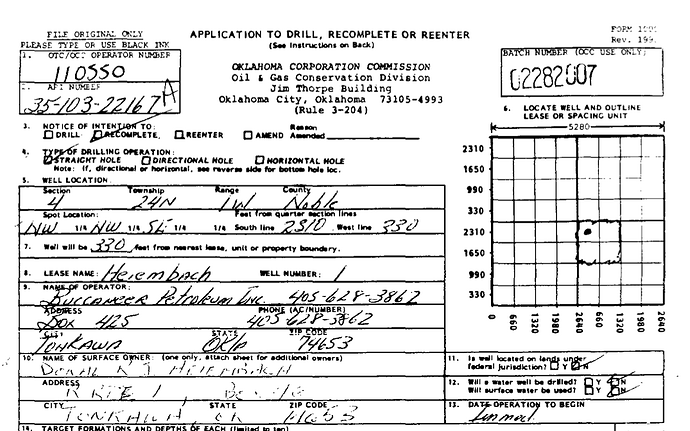 FILE ORIGINAL ONLY
PLEASE TYPE OR USE BLACK INK
APPLICATION TO DRILL, RECOMPLETE OR REENTER
(See Instructions on Back)
Rev. 199
1. OTC/OCC OPERATOR NUMBER
110550
API NUMBER
35-103-22167 A
OKLAHOMA CORPORATION COMMISSION
Oil & Gas Conservation Division
Jim Thorpe Building
Oklahoma City, Oklahoma 73105-4993
(Rule 3-204)
BATCH NUMBER (OCC USE ONLY)
02282007
6. LOCATE WELL AND OUTLINE
LEASE OR SPACING UNIT
5280
3. NOTICE OF INTENTION TO:
DRILL RECOMPLETE REENTER AMEND Reason Amended
4. TYPE OF DRILLING OPERATION:
STRAIGHT HOLE DIRECTIONAL HOLE HORIZONTAL HOLE
Note: If, directional or horizontal, see reverse side for bottom hole loc.
5. WELL LOCATION:
Section Township Range County
4 24N 1W Noble
Spot Location: Feet from quarter section lines
NW 1/4 NW 1/4 SE 1/4 1/4 South line 2310 West line 330
7. Well will be 330 feet from nearest lease, unit or property boundary.
8. LEASE NAME: Heiembach WELL NUMBER: 1
9. NAME OF OPERATOR:
Buccaneer Petroleum Inc. 405-628-3862
ADDRESS PHONE (AC/NUMBER)
Box 425 405-628-3862
CITY STATE ZIP CODE
Tonkawa Okla 74653
2310
1650
990
330
2310
1650
990
330
0 660 1320 1980 2640 660 1320 1980 2640
10. NAME OF SURFACE OWNER: (one only, attach sheet for additional owners)
ADDRESS
CITY STATE ZIP CODE
TONKAWA OK
11. Is well located on lands under
federal jurisdiction? Y N
12. Will a water well be drilled? Y N
Will surface water be used? Y N
13. DATE OPERATION TO BEGIN
14. TARGET FORMATIONS AND DEPTHS OF EACH (limited to ten)